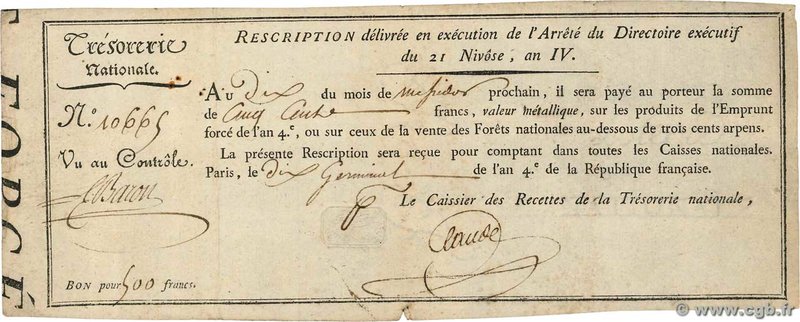 FORCÉ
Trésorerie
Nationale.
N.° 10665
Vu au Contrôle.
Bon pour 500 francs.
RESCRIPTION délivrée en exécution de l'Arrêté du Directoire exécutif
du 21 Nivôse, an IV.
Au dix du mois de messidor prochain, il sera payé au porteur la somme
de Cinq Cents francs, valeur métallique, sur les produits de l'Emprunt
forcé de l'an 4.e, ou sur ceux de la vente des Forêts nationales au-dessous de trois cents arpens.
La présente Rescription sera reçue pour comptant dans toutes les Caisses nationales.
Paris, le dix Germinal de l'an 4.e de la République française.
Le Caissier des Recettes de la Trésorerie nationale,
©www.cgb.fr